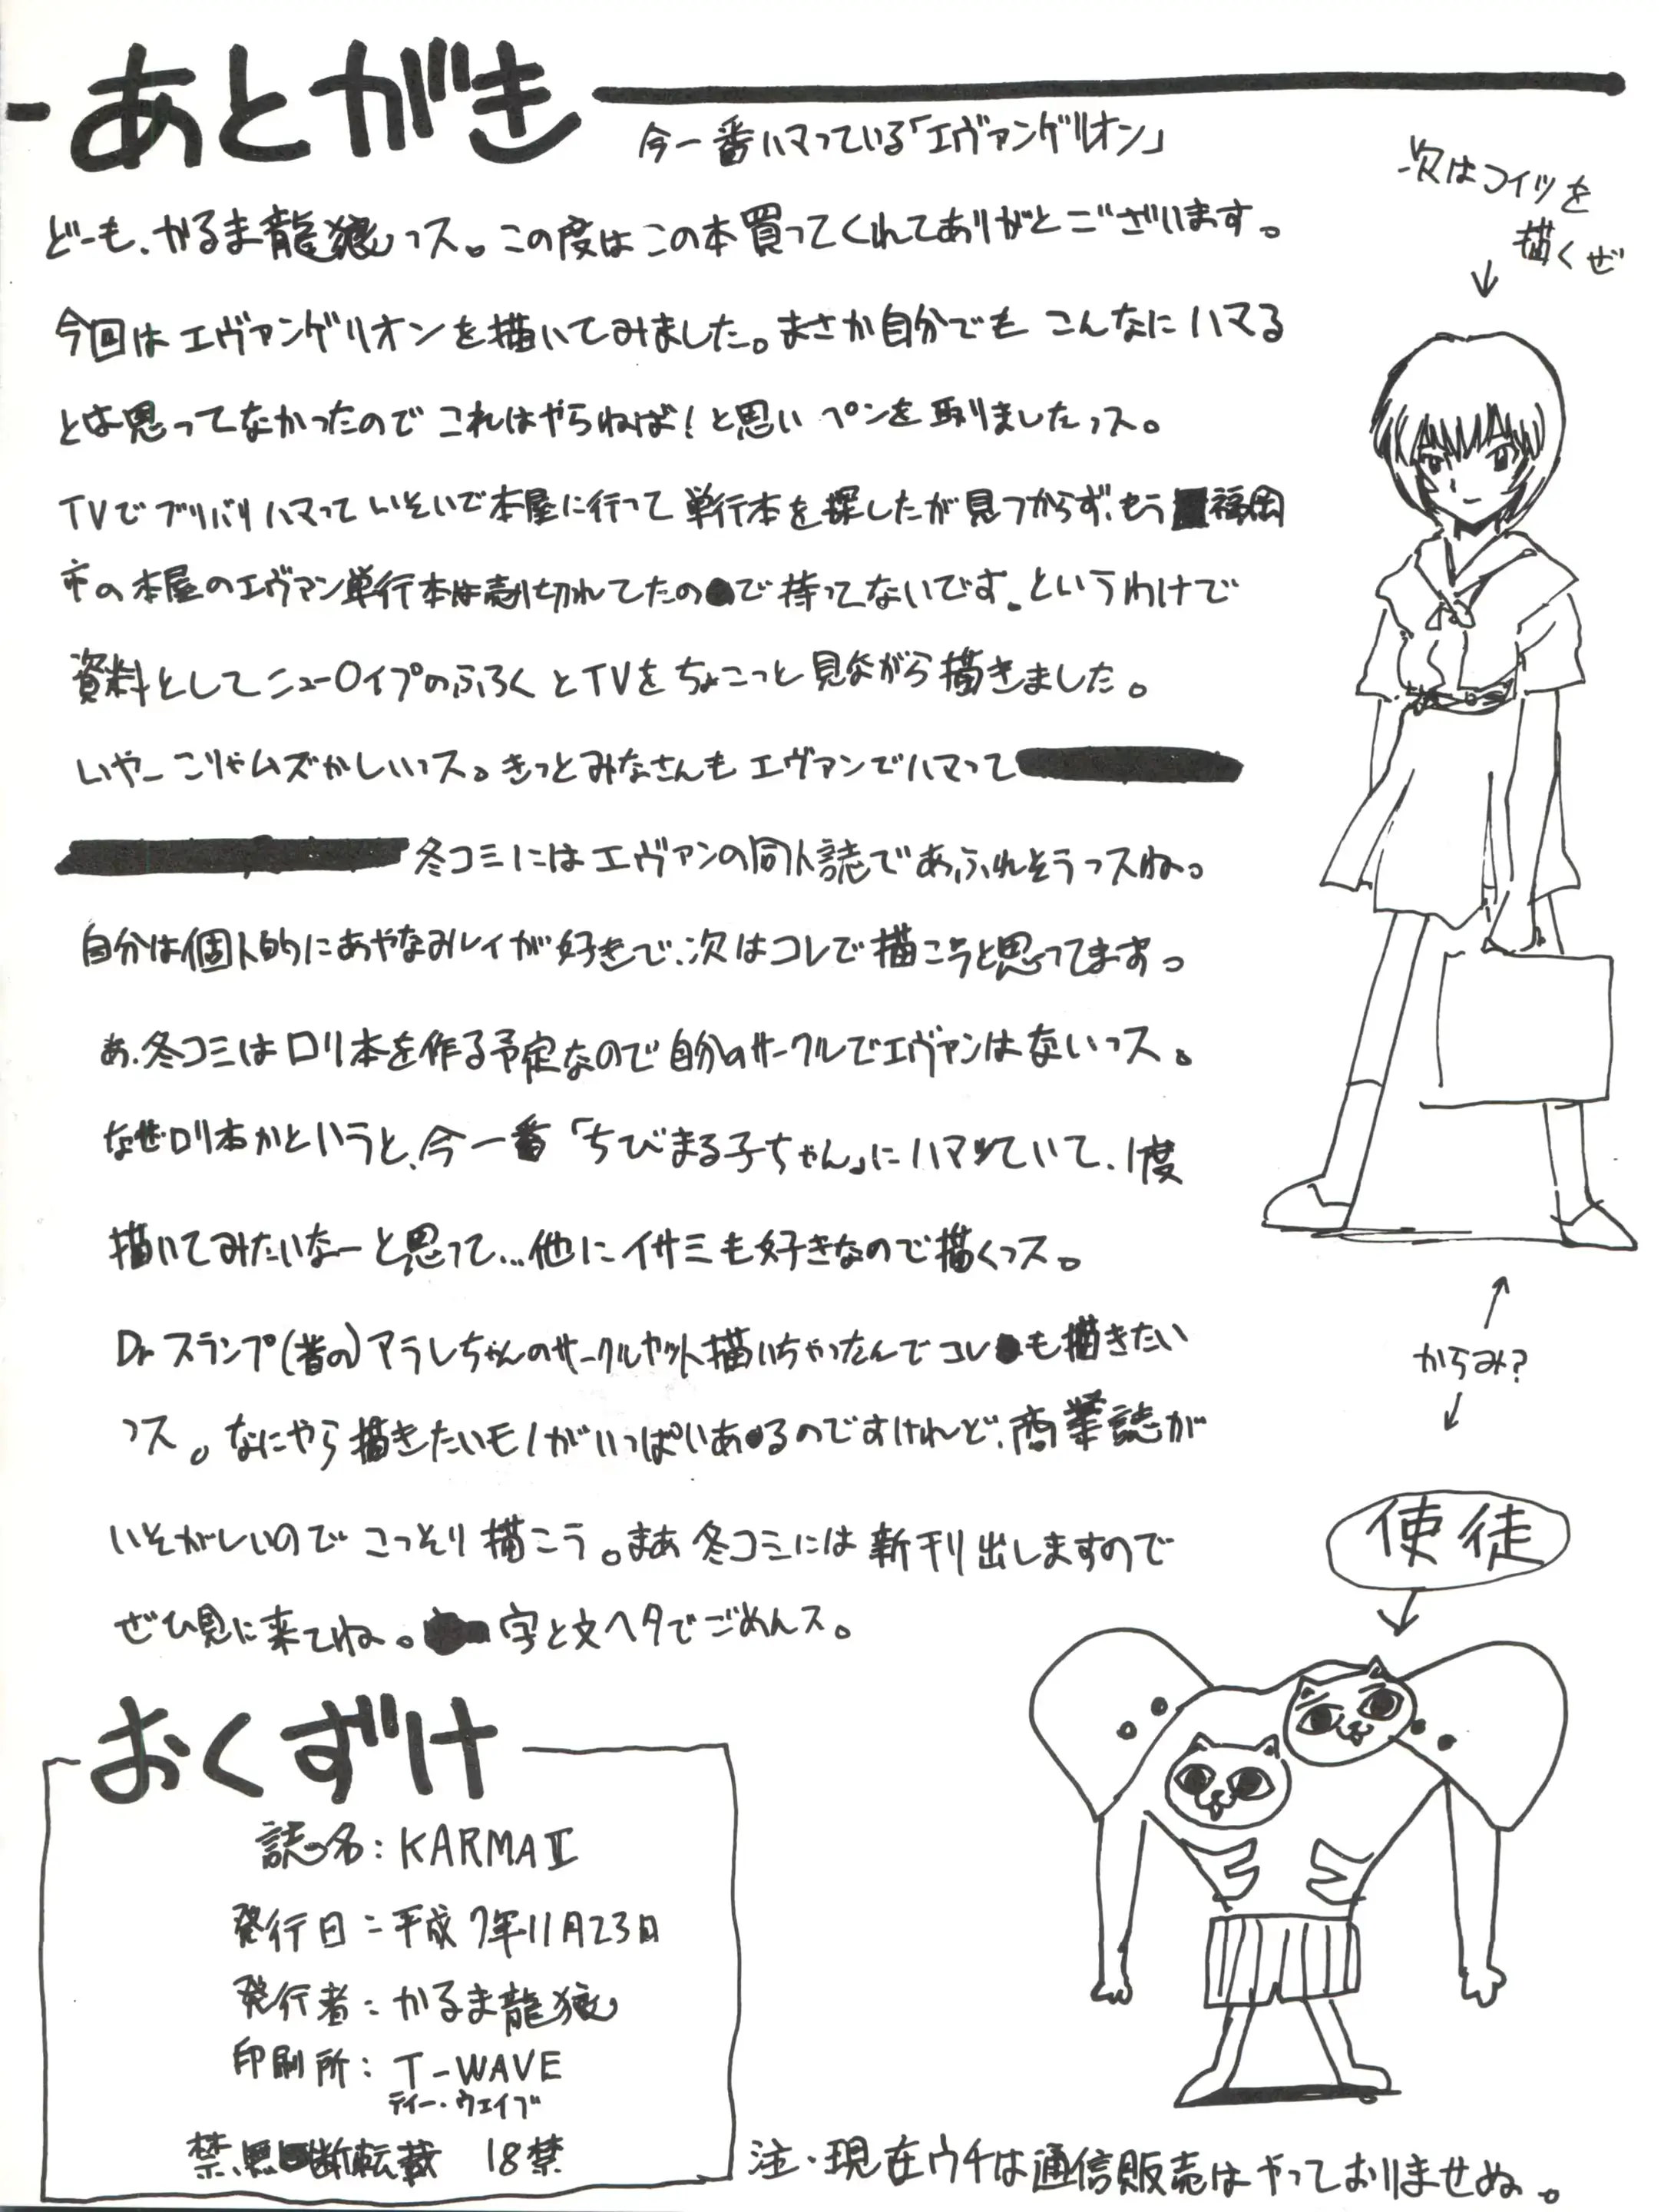 あとがき
今一番ハマっている「エヴァンゲリオン」
次はコイツを
描くぜ
どーも、かるま龍狼っス。この度はこの本買ってくれてありがとうございます。
今回はエヴァンゲリオンを描いてみました。まさか自分でもこんなにハマる
とは思ってなかったのでこれはやらねば!と思いペンを取りましたっス。
TVでブリバリハマっていそいで本屋に行って単行本を探したが見つからず、もう福岡
市の本屋のエヴァン単行本は売り切れてたので持ってないです。というわけで
資料としてニュータイプのふろくとTVをちょこっと見ながら描きました。
いやーこりゃムズかしいっス。きっとみなさんもエヴァンでハマって
冬コミにはエヴァンの同人誌であふれそうっスね。
自分は個人的にあやなみレイが好きで、次はコレで描こうと思ってます。
あ、冬コミはロリ本を作る予定なので自分のサークルでエヴァンはないっス。
なぜロリ本かというと、今一番「ちびまる子ちゃん」にハマっていて、1度
描いてみたいなーと思って…他にイサミも好きなので描くっス。
Dr.スランプ(昔の)アラレちゃんのサークルカット描いちゃったんでコレも描きたい
っス。なにやら描きたいモノがいっぱいあるのですけれど、商業誌が
いそがしいのでこっそり描こう。まあ冬コミには新刊出しますので
ぜひ見に来てね。字と文ヘタでごめんス。
からみ?
使徒
おくずけ
誌名:KARMAⅡ
発行日:平成7年11月23日
発行者:かるま龍狼
印刷所:T-WAVE
ティー・ウェイブ
禁断転載 18禁
注・現在ウチは通信販売はやっておりませぬ。